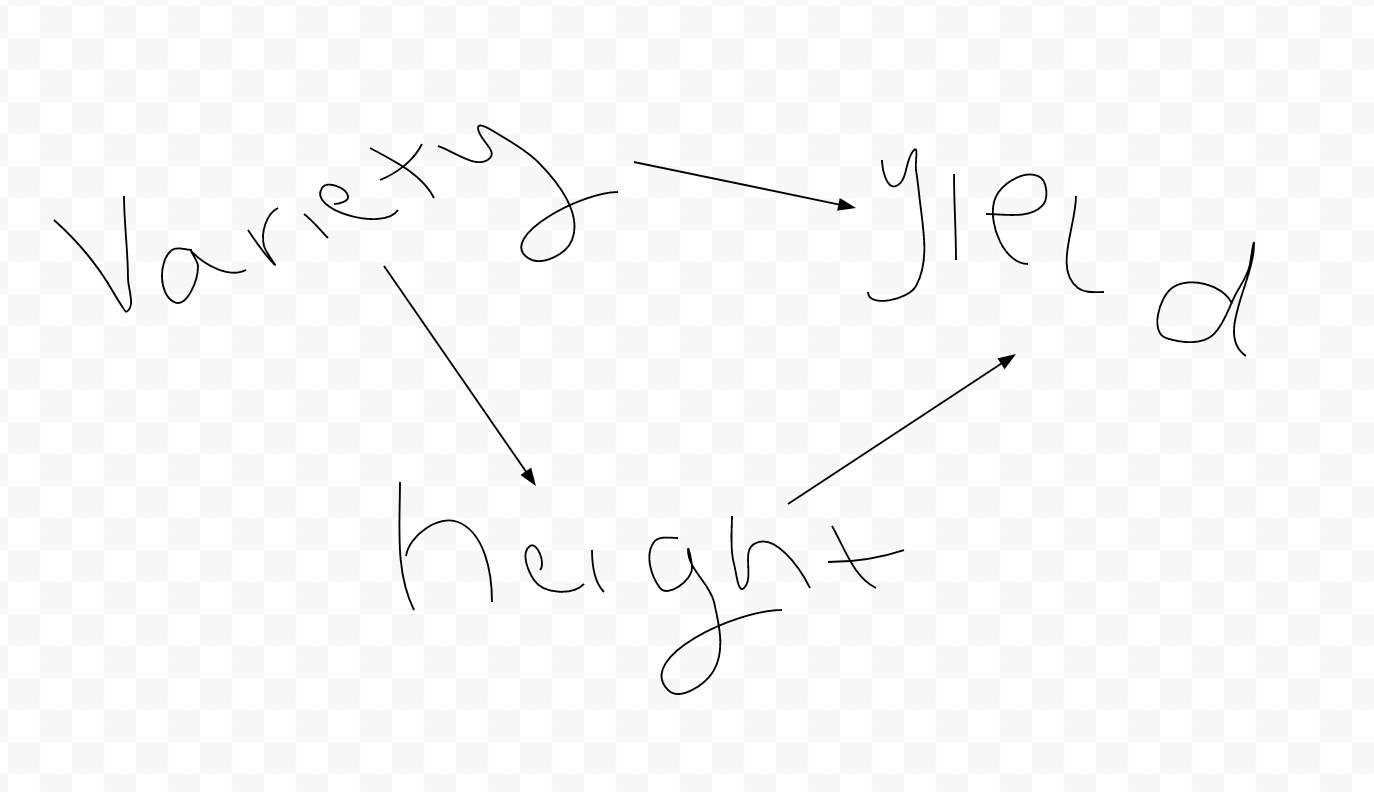 Variety
yield
height